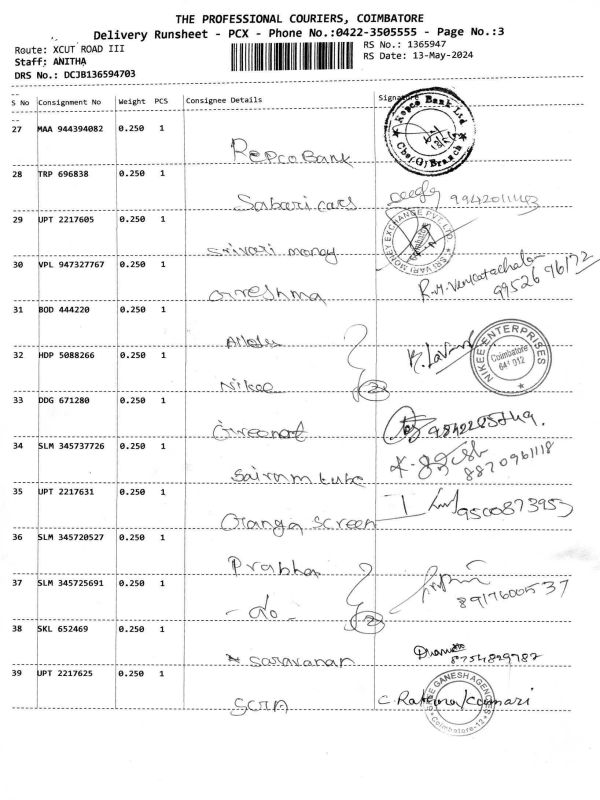 THE PROFESSIONAL COURIERS, COIMBATORE
Delivery Runsheet - PCX - Phone No.:0422-3505555 - Page No.:3
Route: XCUT ROAD III
RS No.: 1365947
Staff: ANITHA
RS Date: 13-May-2024
DRS No.: DCJB136594703
S No Consignment No Weight PCS Consignee Details Signature
27 MAA 944394082 0.250 1 Repco Bank
Repco Bank Ltd
Cbe(G) Branch
28 TRP 696838 0.250 1 Sabari cars
29 UPT 2217605 0.250 1 Srivari money
SRIVARI MONEY EXCHANGE PVT. LTD.
Coimbatore
30 VPL 947327767 0.250 1
R.M. Venkatachala
9952696172
31 BOD 444220 0.250 1
32 HDP 5088266 0.250 1 Nikee 2
NIKEE ENTERPRISES
Coimbatore
641 012
33 DDG 671280 0.250 1
34 SLM 345737726 0.250 1 Sairam tube
8870961118
35 UPT 2217631 0.250 1 Oranga screen 9500873953
36 SLM 345720527 0.250 1 Prabha
37 SLM 345725691 0.250 1 - do - 2
8917600537
38 SKL 652469 0.250 1 Saravanan
8754829782
39 UPT 2217625 0.250 1
C. Rathna Kumari
GANESH AGENCIES
Coimbatore-12